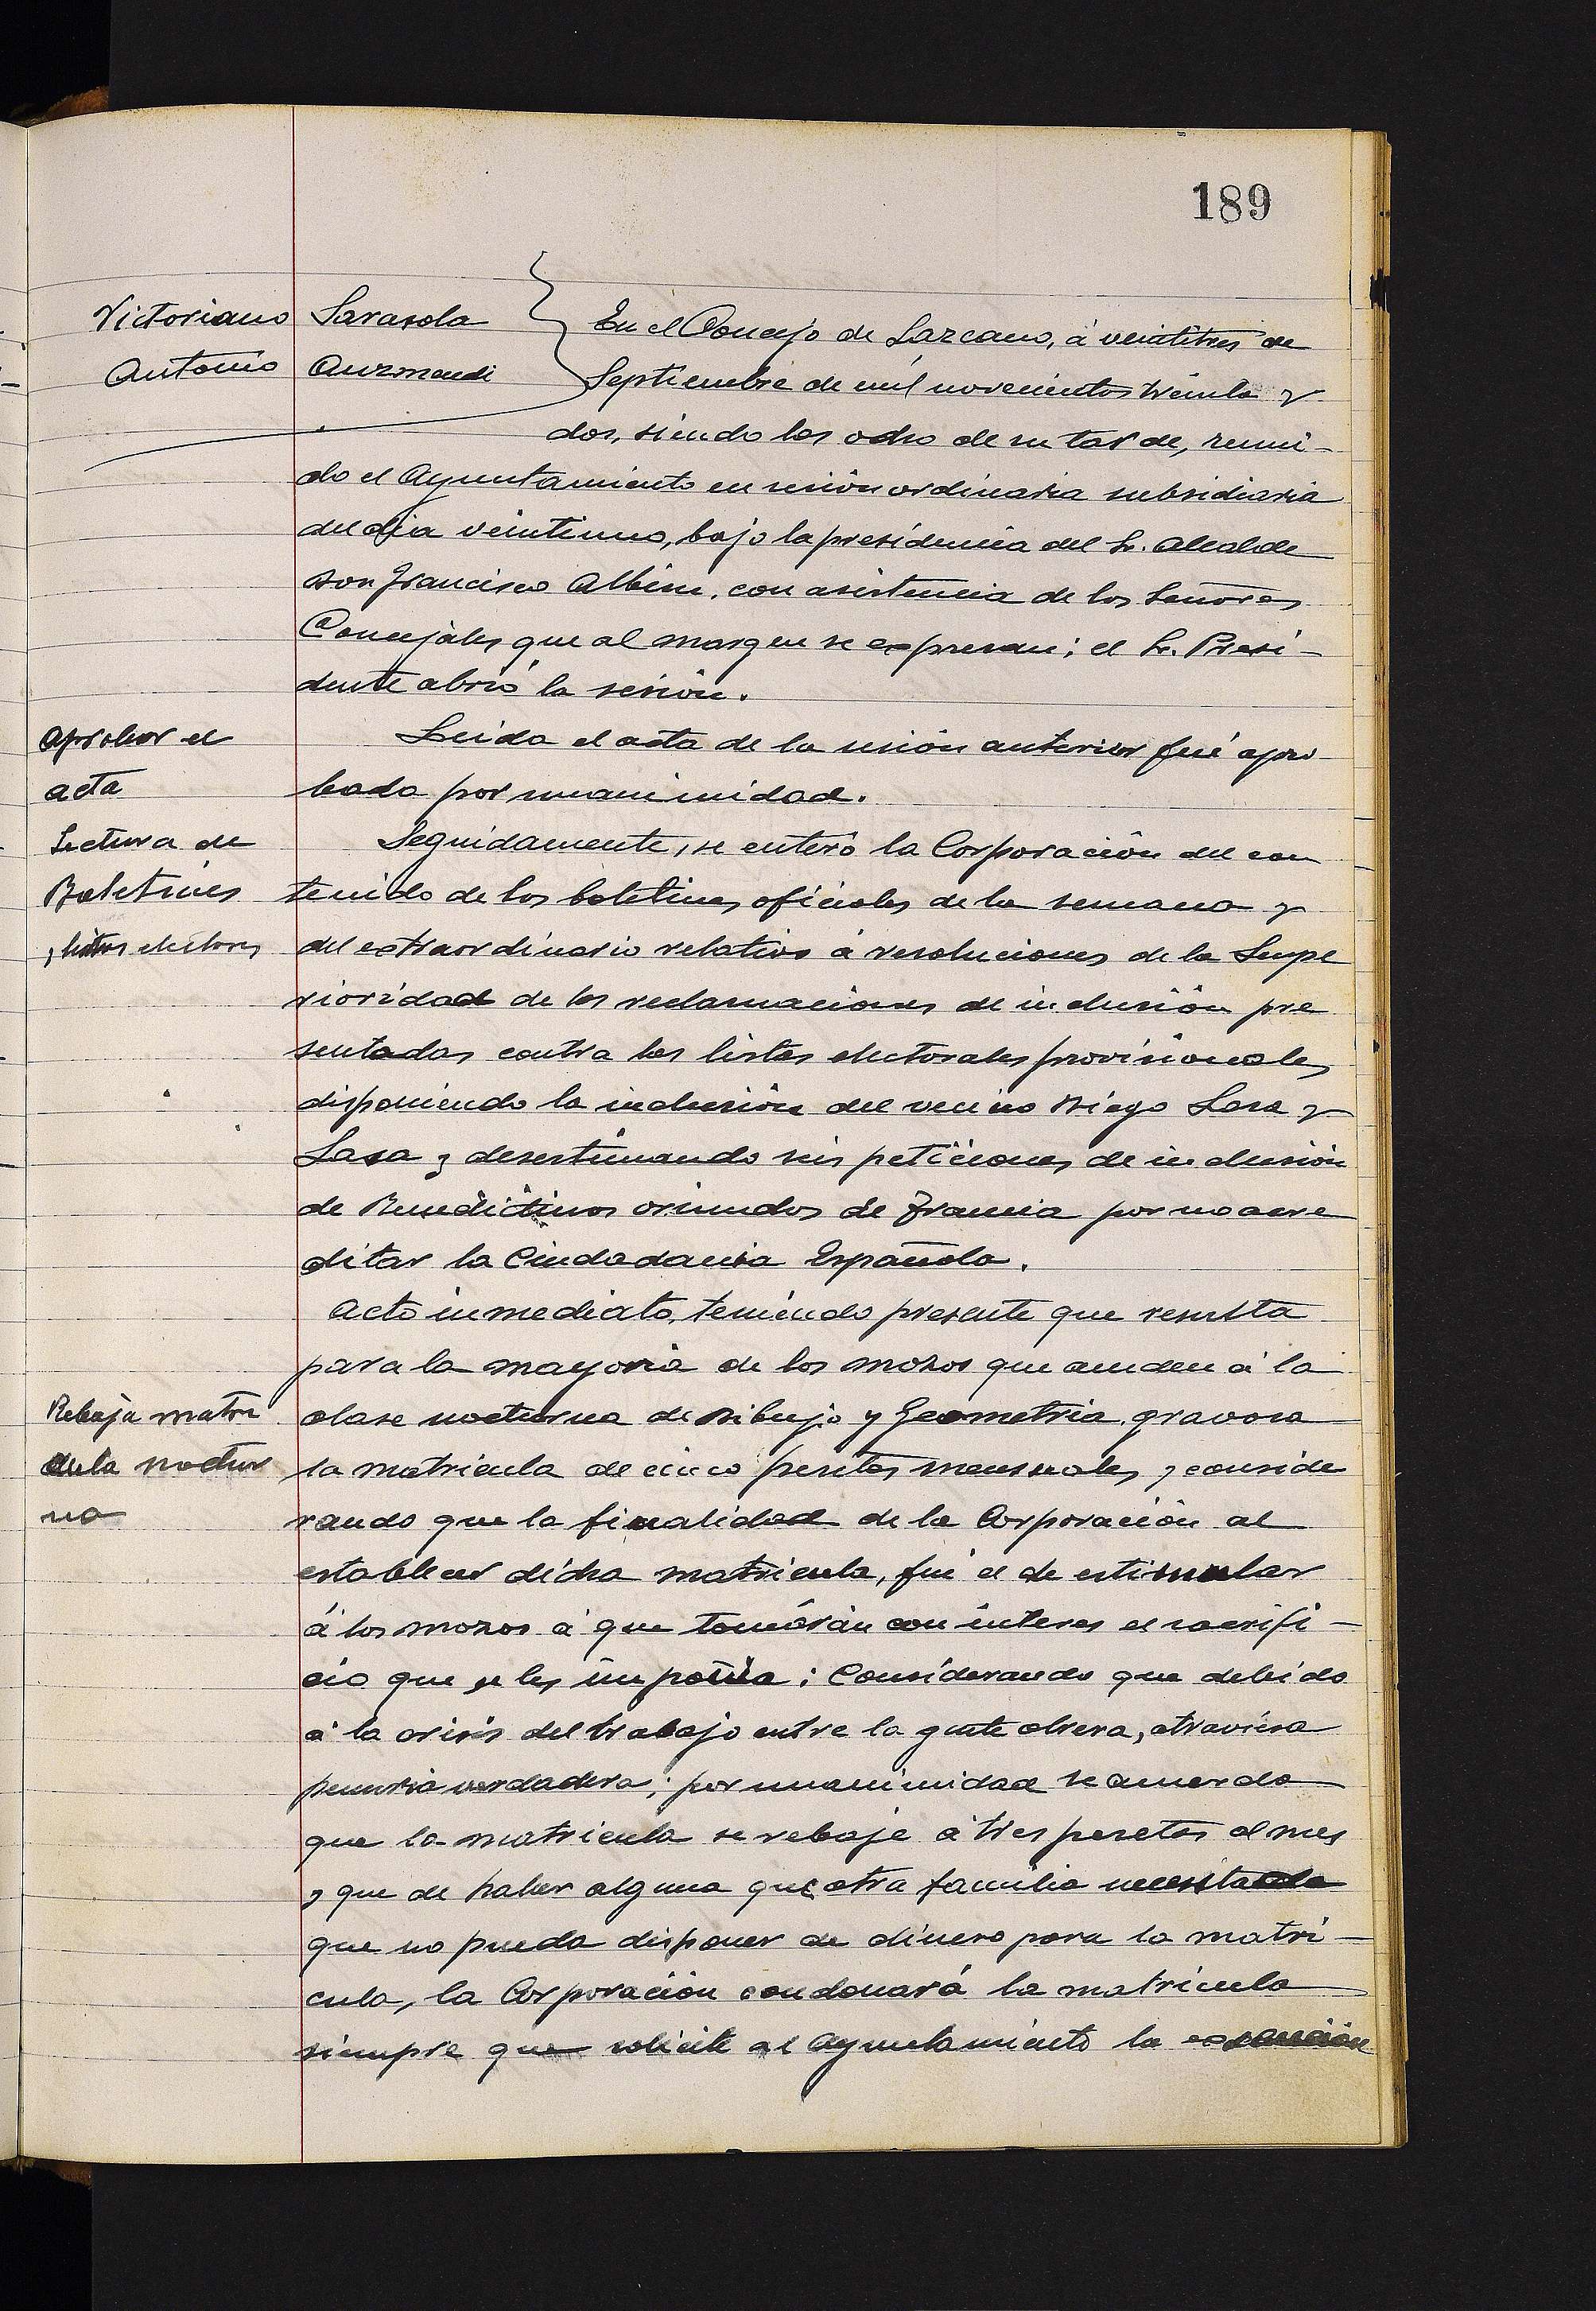 189
Victoriano Sarasola
Antonio Auzmendi
En el Concejo de Lazcano, á veintitres de
Septiembre de mil novecientos treinta y
dos, siendo las ocho de su tarde, reuni-
do el Ayuntamiento en sesión ordinaria subsidiaria
del dia veintiuno, bajo la presidencia del Sr. Alcalde
Don Francisco Albisu, con asistencia de los Señores
Concejales que al margen se expresan; el Sr. Presi-
dente abrió la sesión.
Aprobar el
acta
Leida el acta de la sesión anterior fué apro
bada por unanimidad.
Lectura de
Boletines
y listas electores
Seguidamente, se enteró la Corporación del con
tenido de los boletines oficiales de la semana y
del extraordinario relativo á resoluciones de la Supe
rioridad de las reclamaciones de inclusión pre
sentadas contra las listas electorales provisionales
disponiendo la inclusión del vecino Diego Lasa y
Lasa y desestimando seis peticiones de inclusión
de Benedictinos oriundos de Francia por no acre
ditar la Ciudadania Española.
Acto inmediato, teniendo presente que resulta
para la mayoria de los mozos que acuden á la
Rebaja matri
cula noctur
na
clase nocturna de Dibujo y Geometria, gravosa
la matricula de cinco pesetas mensuales, y conside
rando que la finalidad de la Corporación al
establecer dicha matricula, fué el de estimular
á los mozos á que tomarán con interes el sacrifi-
cio que se les imponia: Considerando que debido
á la crisis del trabajo entre la gente obrera, atraviesa
penuria verdadera; por unanimidad se acuerda
que la matricula se rebaje á tres pesetas al mes
y que de haber alguna que otra familia necesitada
que no pueda disponer de dinero para la matri-
cula, la Corporación condonará la matricula
siempre que solicite al Ayuntamiento la exención